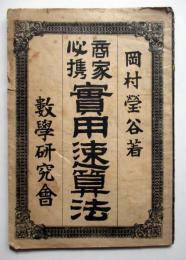 岡村瑩谷著
商家必携
實用速算法
數學研究會